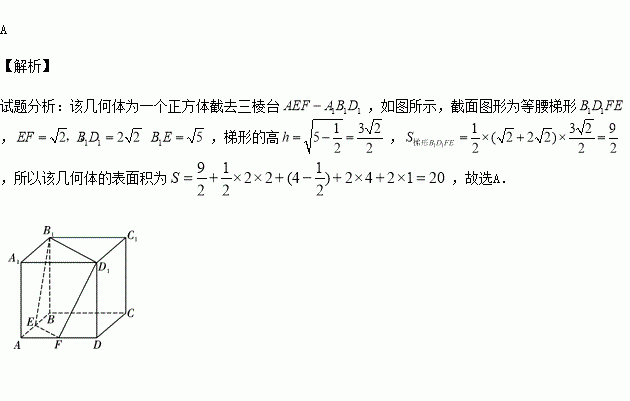 A
【解析】
试题分析：该几何体为一个正方体截去三棱台 AEF − A₁B₁D₁ ，如图所示，截面图形为等腰梯形 B₁D₁FE
， EF = √2, B₁D₁ = 2√2  B₁E = √5 ，梯形的高 h = √(5 − 1/2) = 3√2/2 ， S梯形B₁D₁FE = 1/2 × (√2 + 2√2) × 3√2/2 = 9/2
，所以该几何体的表面积为 S = 9/2 + 1/2 × 2 × 2 + (4 − 1/2) + 2 × 4 + 2 × 1 = 20 ，故选A．
B₁ C₁
A₁ D₁
E B C
A F D